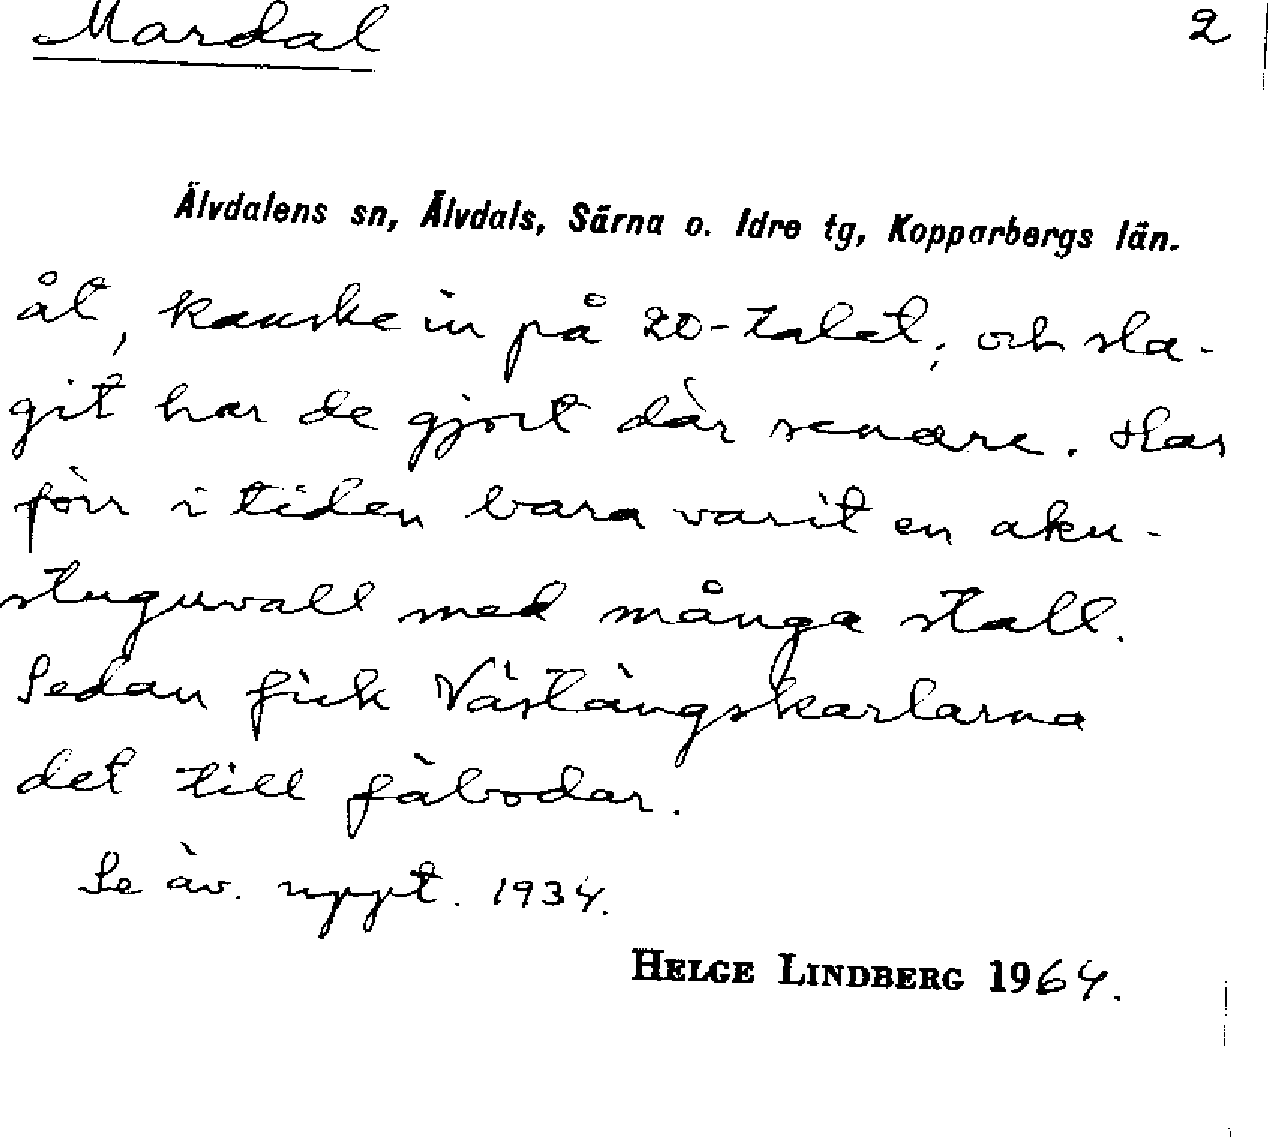 Mardal 2
Älvdalens sn, Älvdals, Särna o. Idre tg, Kopparbergs län.
åt, kanske in på 20-talet, och sla-
git har de gjort där senare. Har
förr i tiden bara varit en aku-
stuguvall med många stall.
Sedan fick Västängskarlarna
det till fäbodar.
Se äv. uppt. 1934.
HELGE LINDBERG 1964.